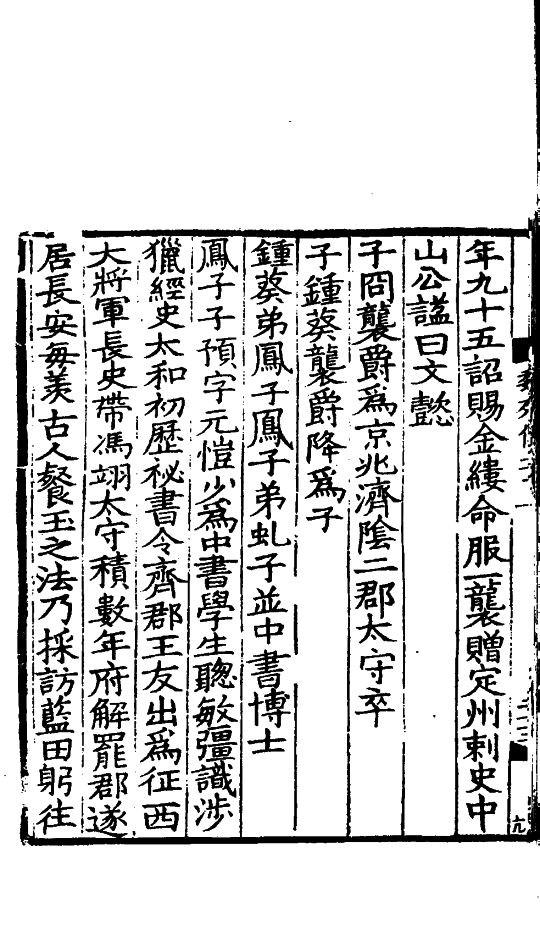 年九十五詔賜金縷命服一襲贈定州刺史中
山公謚曰文懿
子冏襲爵為京兆濟陰二郡太守卒
子鍾葵襲爵降為子
鍾葵弟鳳子鳳子弟虬子並中書博士
鳳子子預字元愷少為中書學生聰敏彊識涉
獵經史太和初歷祕書令齊郡王友出為征西
大將軍長史帶馮翊太守積數年府解罷郡遂
居長安每羡古人餐玉之法乃採訪藍田躬往